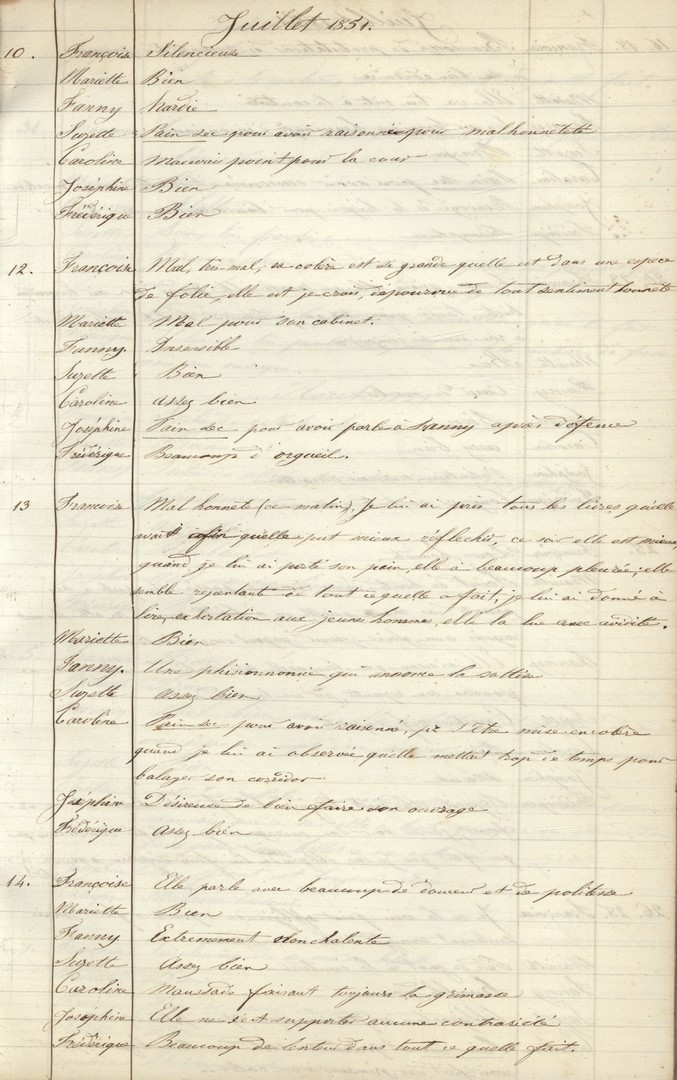 Juillet 1851.
10. Françoise Silencieuse
Mariette Bien
Fanny Hardie
Suzette Pain sec pour avoir raisonnée pour malhonneteté
Caroline Mauvais point pour la cour
Joséphine Bien
Frédérique Bien
12. Françoise Mal, très mal, sa colère est si grande quelle est dans une espece
de folie, elle est je crois, dépourvue de tout sentiment honnete
Mariette Mal pour son cabinet.
Fanny. Insensible
Suzette Bien
Caroline Assez bien
Joséphine Pain sec pour avoir parlé à Fanny après défence
Frédérique Beaucoup d'orgueil.
13 Francoise Mal honnete (ce matin), Je lui ai pris tous les livres qu'elle
avait afin quelle put mieux réflechir, ce soir elle est mieux,
quand je lui ai porté son pain, elle à beaucoup pleurée; elle
semble repentante de tout ce quelle a fait, je lui ai donné à
lire, exhortation aux jeunes hommes, elle la lue avec avidité.
Mariette Bien
Fanny. Une phisionnomie qui annonce la sottise
Suzette Assez bien
Caroline Pain sec pour avoir raisonné, et s'être mise en colère
quand je lui ai observée quelle mettait trop de temps pour
balayer son corridor
Joséphine Désireuse de bien faire son ouvrage
Frédérique Assez bien
14. Françoise Elle parle avec beaucoup de douceur et de politesse
Mariette Bien
Fanny Extremement nonchalente
Suzette Assez bien
Caroline Maussade faisant toujours la grimasse
Joséphine Elle ne sait supporter aucune contrariété
Frédérique Beaucoup de lenteur dans tout ce quelle fait.